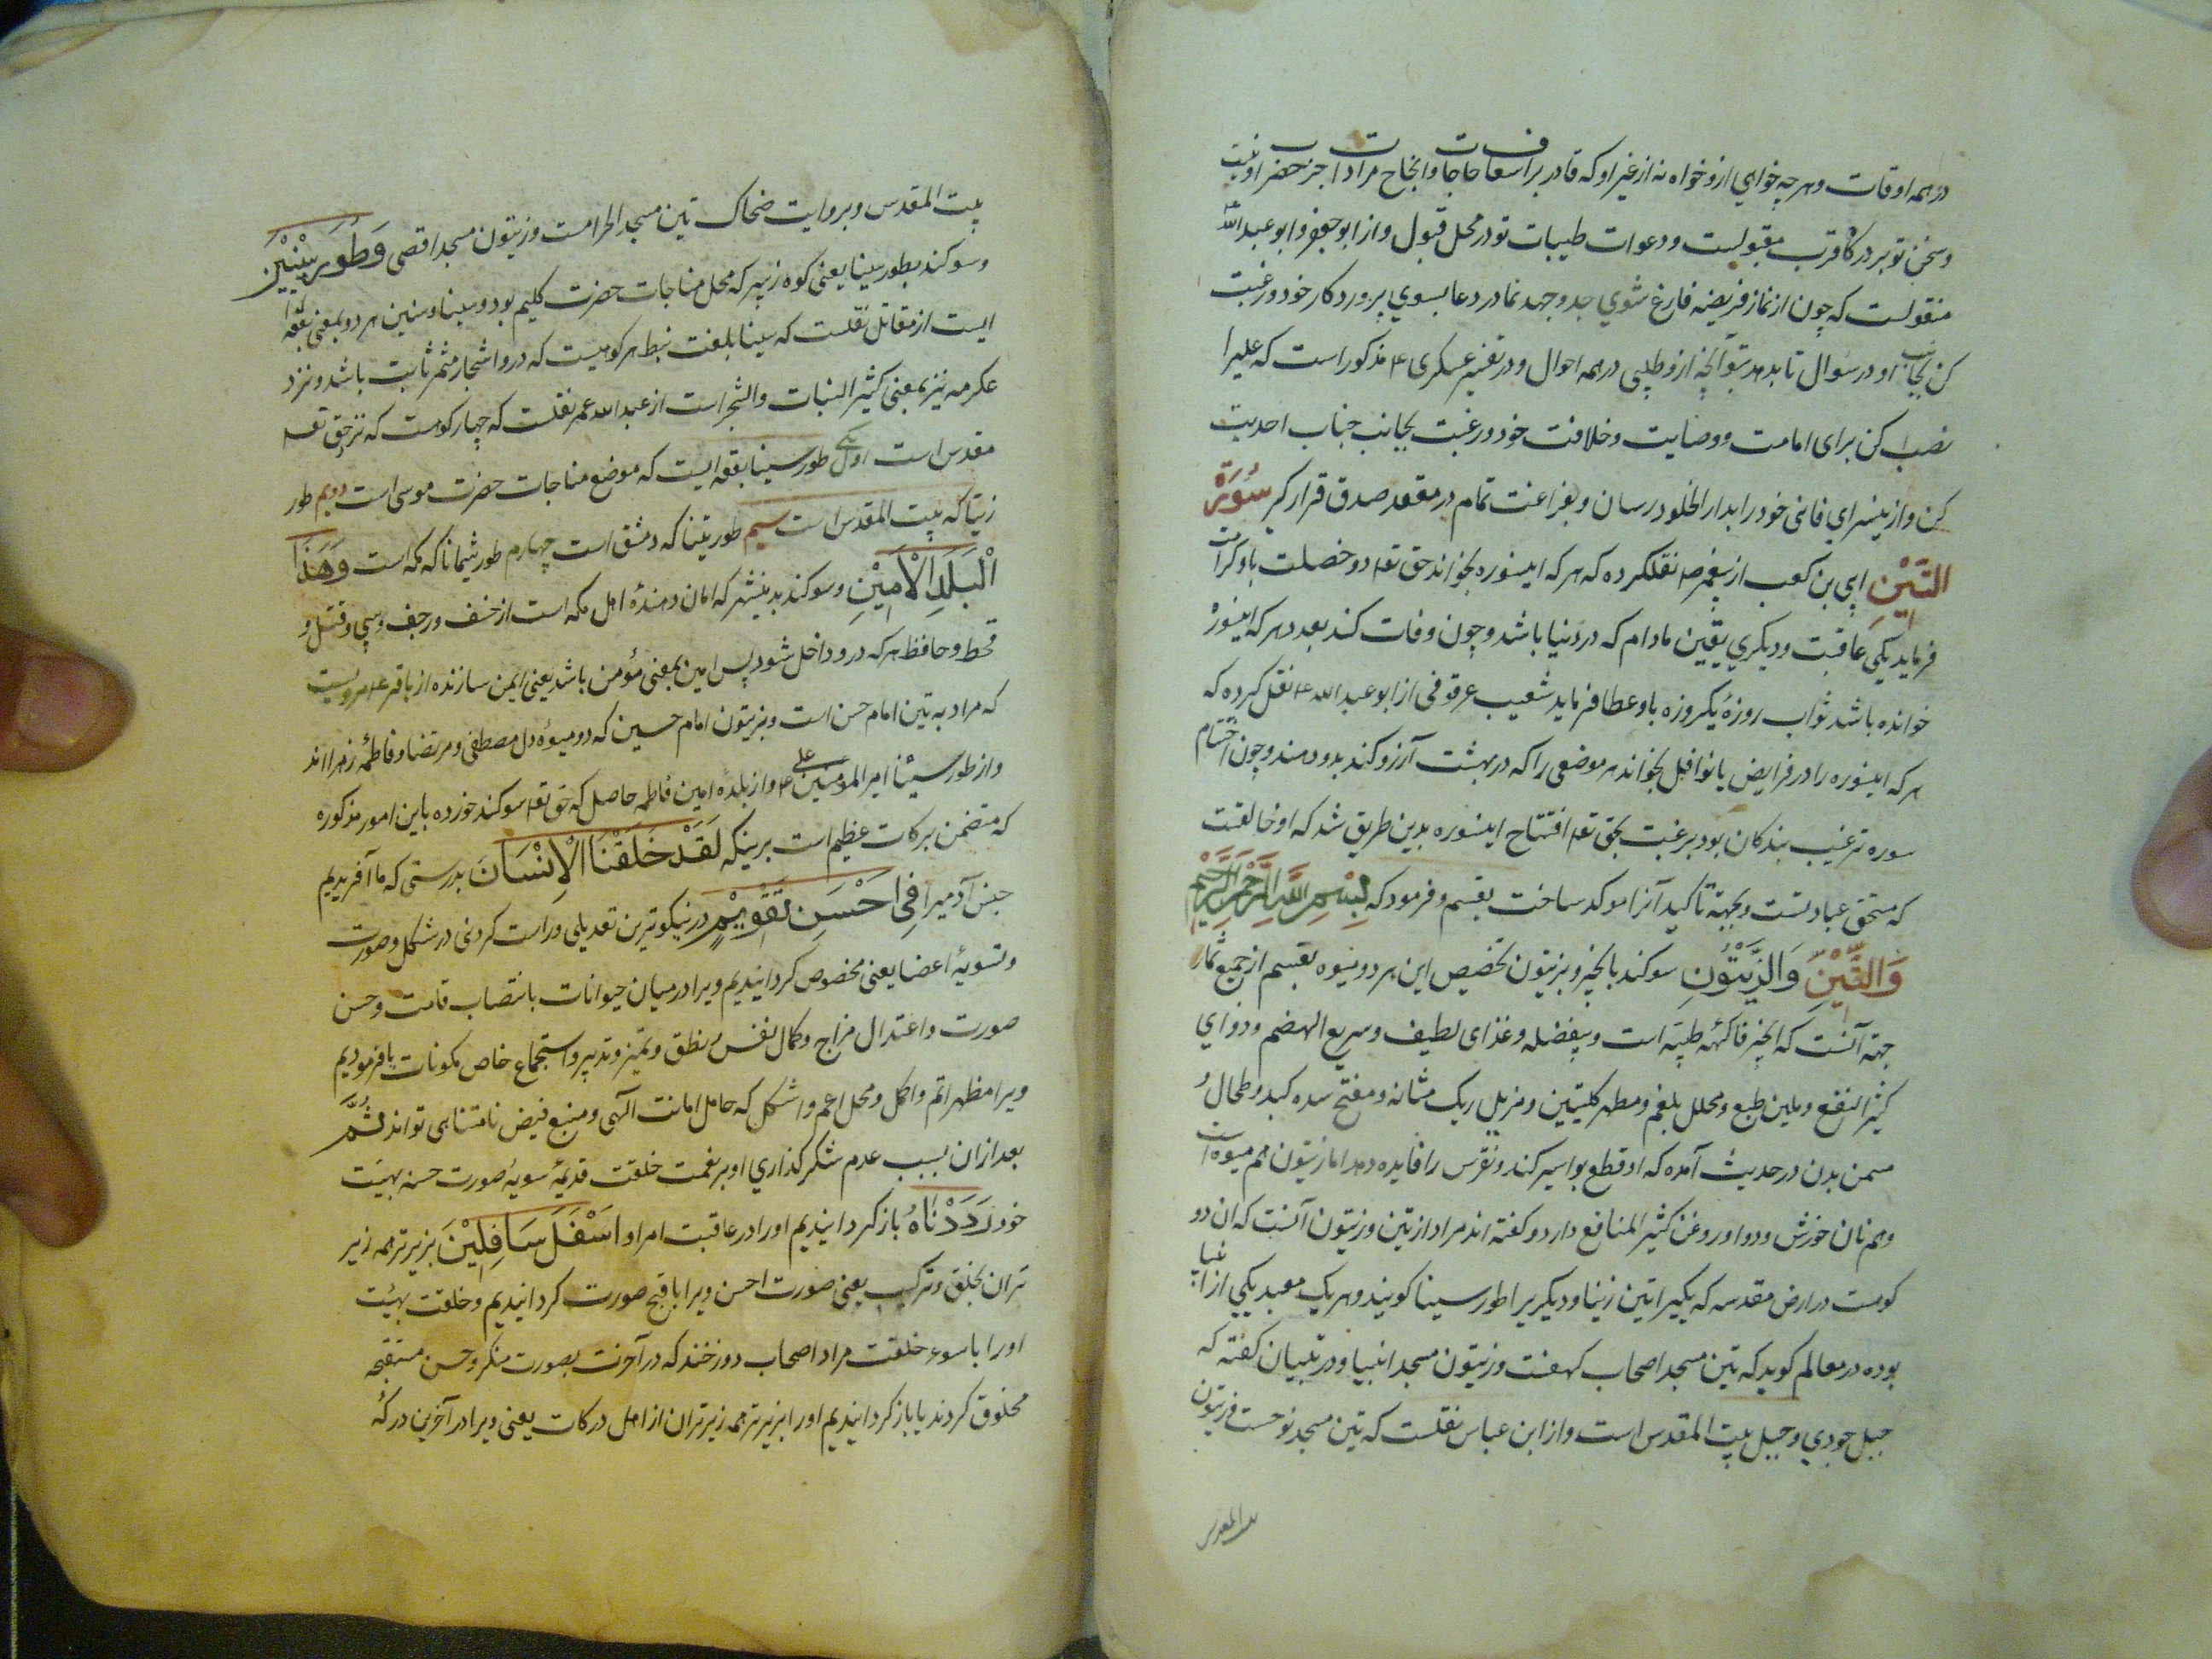 در همه اوقات و هر چه خواهی ازو خواه نه از غیر او که قادر بر اسعاف حاجات و انجاح مرادات جز حضرت او نیست
و سخن تو بر درگاه قرب مقبولست و دعوات طیبات تو در محل قبول و از ابو جعفر و ابو عبدالله ع
منقولست که چون از نماز فریضه فارغ شوی جد و جهد نما در دعا بسوی پروردکار خود و رغبت
کن بجانب او در سؤال تا بدهد بتو آنچه ازو طلبی در همه احوال و در تفسیر عسکری ع مذکور است که علیرا
نصب کن برای امامت و وصایت و خلافت خود و رغبت بجانب جناب احدیت
کن و ازینسرای فانی خود را بدار الخلود رسان و بفراغت تمام در مقعد صدق قرار کیر سُورَة
التّینِ ابی بن کعب از پیغمبر ص نقلکرده که هر که اینسوره بخواند حق تعا دو خصلت باو کرامت
فرماید یکی عاقبت و دیکری یقین مادام که در دنیا باشد و چون وفات کند بعدد هر که اینسوره
خوانده باشد ثواب روزهٔ یکروزه باو عطا فرماید شعیب عرقوفی از ابو عبد الله ع نقل کرده که
هر که اینسوره را در فرایض یا نوافل بخواند هر موضعی را که در بهشت آرزو کند بدو دهند و چون اختتام
سوره ترغیب بندکان بود برغبت بحق تعا افتتاح اینسوره بدین طریق شد که او خالقست
که مستحق عبادتست و بجهة تاکید آنرا موکد ساخت بقسم و فرمود که بِسْمِ اللَّهِ الرَّحْمنِ الرَّحیم
وَالتِّیْنِ وَالزَّیْتُونِ سوکند بانجیر و بزیتون تخصیص این هر دو میوه بقسم از جمیع ثمار
جهة آنست که انجیر فاکهه طیبه است و بیفضله و غذای لطیف و سریع الهضم و دوای
کثیر النفع و ملین طبع و محلل بلغم و مطهر کلیتین و مزیل ریک مثانه و مفتح سده کبد و طحال و
مسمن بدن در حدیث آمده که او قطع بواسیر کند و نقرس را فایده دهد اما زیتون هم میوه است
و هم نان خورش و دوا و روغن کثیر المنافع دارد و کفته اند مراد از تین و زیتون آنست که ان دو
کوهست در ارض مقدسه که یکیرا تین زیتا و دیکریرا طور سینا کویند و هر یک معبد یکی از انبیا
بوده در معالم کوید که تین مسجد اصحاب کهفست و زیتون مسجد انبیا و در تبیان کفته که
جبل جودی و جبل بیت المقدس است و از ابن عباس نقلست که تین مسجد نوحست و زیتون
بیت المقدس
بیت المقدس و بروایت ضحاک تین مسجد الحرامست و زیتون مسجد اقصی وَطُورِ سِیْنِیْنَ
و سوکند بطور سینا یعنی کوه زبیر که محل مناجات حضرت کلیم بود و سینا و سنین هر دو بمعنی بقعه
ایست از مقاتل نقلست که سینا بلغت نبط هر کوهیست که در و اشجار مثمر ثابت باشد و نزد
عکرمه نیز بمعنی کثیر النبات والشجر است از عبد الله عمر نقلست که چهار کوهست که نزد حق تعا
مقدس است اول طور سینا بقعه ایست که موضع مناجات حضرت موسی است دویم طور
زیتا که بیت المقدس است سیم طور تینا که دمشق است چهارم طور تیمانا که مکه است وَهذَا
الْبَلَدِ الْاَمِیْنِ و سوکند بدینشهر که امان دهندهٔ اهل مکه است از خسف و رجف و سبی و قتل و
قحط و حافظ هر که در و داخل شود پس امین بمعنی مؤمن باشد یعنی ایمن سازنده از باقر ع مرویست
که مراد به تین امام حسن است و بزیتون امام حسین که دو میوهٔ دل مصطفی و مرتضا و فاطمهٔ زهرا اند
و از طور سینا امیر المومنین علی ع و از بلدهٔ امین فاطمه حاصل که حق تعا سوکند خورده باین امور مذکوره
که متضمن برکات عظیم است برینکه لَقَدْ خَلَقْنَا الْاِنْسَانَ بدرستی که ما آفریدیم
جنس آدمیرا فِی اَحْسَنِ تَقْوِیْمٍ در نیکوترین تعدیلی و راست کردنی در شکل و صورت
و تسویهٔ اعضا یعنی مخصوص کردانیدیم ویرا در میان حیوانات بانتصاب قامت و حسن
صورت و اعتدال مزاج و کمال نفس و نطق و تمیز و تدبیر و استجماع خاص مکونات یا فرمودیم
ویرا مظهر اتم و اکمل و محل اعم و اشکل که حامل امانت الهی و منبع فیض نامتناهی تواند ثُمَّ
بعد ازان بسبب عدم شکر کذاری او بر نعمت خلقت قدیمهٔ سویهٔ صورت حسنه بهیئت
خود رَدَدْنَاهُ باز کردانیدیم او را در عاقبت امر او اَسْفَلَ سَافِلِیْنَ بزیرتر همه زیر
تران بخلق و ترکیب یعنی صورت احسن ویرا باقبح صورت کردانیدیم و خلقت بهیئت
او را باسوء خلقت مراد اصحاب دوزخند که در آخرت بصورت منکر و حسن مستقبحه
مخلوق کردند یا باز کردانیدیم او را بزیرتر همه زیرتران از اهل درکات یعنی ویرا در آخرین درکهٔ